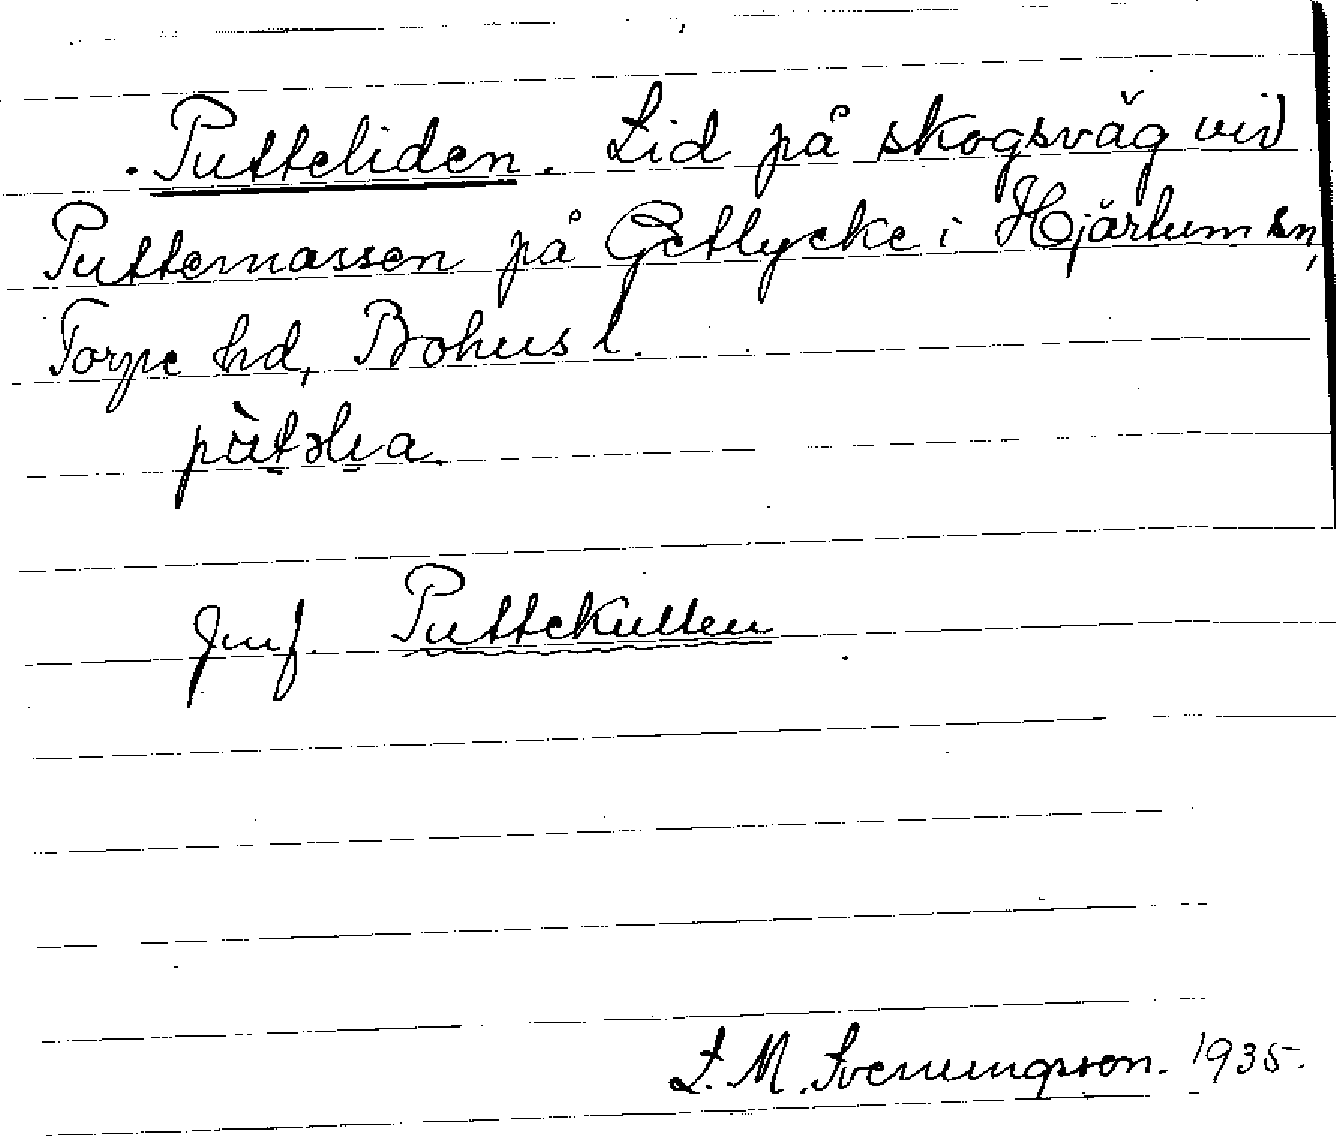 Putteliden. Lid på skogsväg vid
Puttemassen på Getlycke i Hjärtum sn,
Torpe hd, Bohus l.
Jmf. Puttekullen
L. M. Svenungsson. 1935.